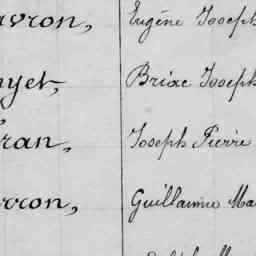 avron, Eugéne Joseph
nyet, Briac Joseph
ran, Joseph Pierre
rron, Guillaume Ma